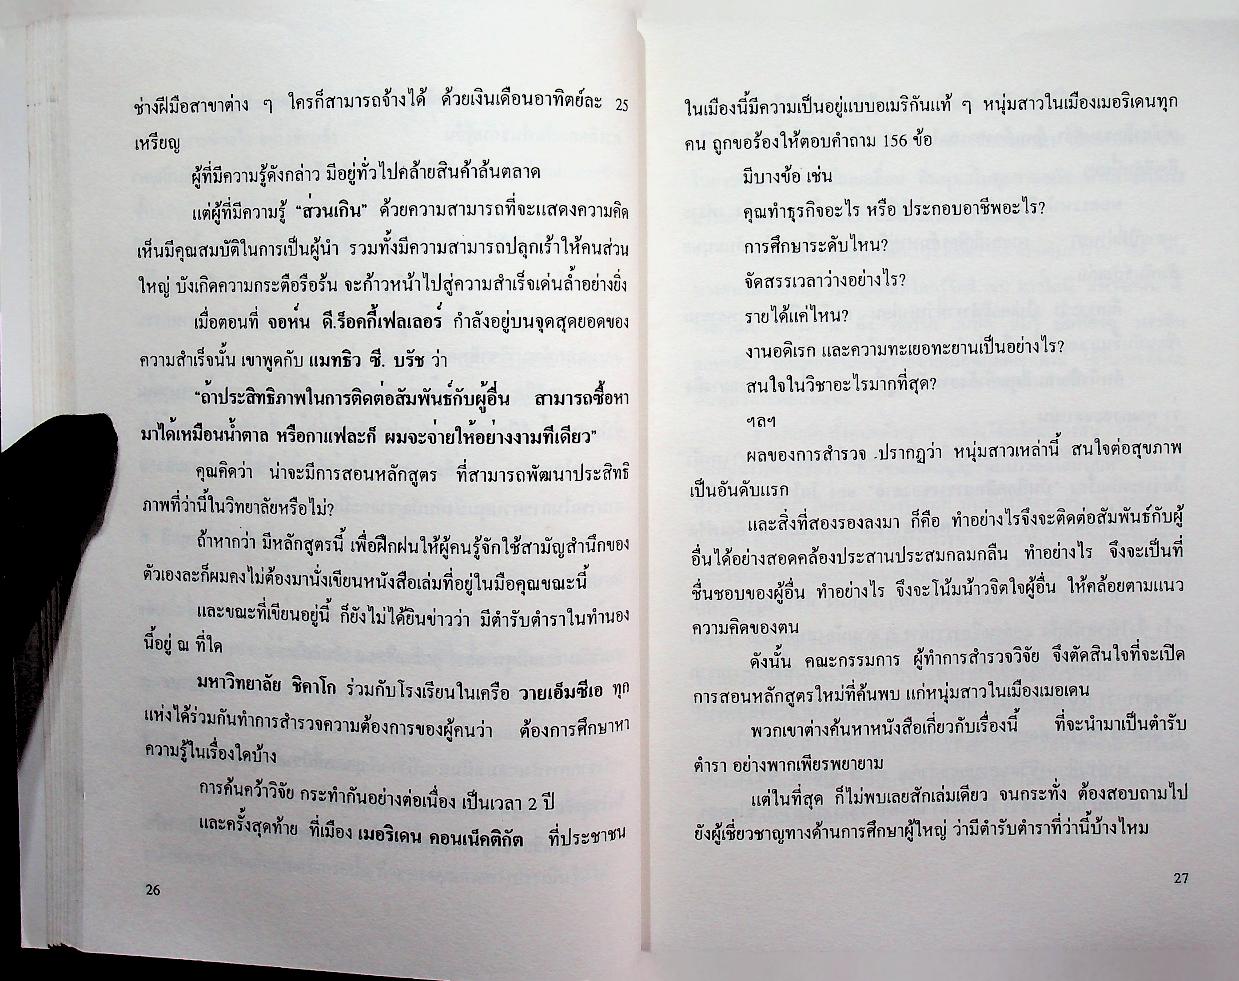 ช่างฝีมือสาขาต่าง ๆ ใครก็สามารถจ้างได้ ด้วยเงินเดือนอาทิตย์ละ 25
เหรียญ
ผู้ที่มีความรู้ดังกล่าว มีอยู่ทั่วไปคล้ายสินค้าล้นตลาด
แต่ผู้ที่มีความรู้ “ส่วนเกิน” ด้วยความสามารถที่จะแสดงความคิด
เห็นมีคุณสมบัติในการเป็นผู้นำ รวมทั้งมีความสามารถปลุกเร้าให้คนส่วน
ใหญ่ บังเกิดความกระตือรือร้น จะก้าวหน้าไปสู่ความสำเร็จเด่นล้ำอย่างยิ่ง
เมื่อตอนที่ จอห์น ดี.ร็อคกี้เฟลเลอร์ กำลังอยู่บนจุดสุดยอดของ
ความสำเร็จนั้น เขาพูดกับ แมทธิว ซี. บรัช ว่า
“ถ้าประสิทธิภาพในการติดต่อสัมพันธ์กับผู้อื่น สามารถซื้อหา
มาได้เหมือนน้ำตาล หรือกาแฟละก็ ผมจะจ่ายให้อย่างงามทีเดียว”
คุณคิดว่า น่าจะมีการสอนหลักสูตร ที่สามารถพัฒนาประสิทธิ
ภาพที่ว่านี้ในวิทยาลัยหรือไม่?
ถ้าหากว่า มีหลักสูตรนี้ เพื่อฝึกฝนให้ผู้คนรู้จักใช้สามัญสำนึกของ
ตัวเองละก็ผมคงไม่ต้องมานั่งเขียนหนังสือเล่มที่อยู่ในมือคุณขณะนี้
และขณะที่เขียนอยู่นี้ ก็ยังไม่ได้ยินข่าวว่า มีตำรับตำราในทำนอง
นี้อยู่ ณ ที่ใด
มหาวิทยาลัย ชิคาโก ร่วมกับโรงเรียนในเครือ วายเอ็มซีเอ ทุก
แห่งได้ร่วมกันทำการสำรวจความต้องการของผู้คนว่า ต้องการศึกษาหา
ความรู้ในเรื่องใดบ้าง
การค้นคว้าวิจัย กระทำกันอย่างต่อเนื่อง เป็นเวลา 2 ปี
และครั้งสุดท้าย ที่เมือง เมอริเดน คอนเน็คติกัต ที่ประชาชน
26
ในเมืองนี้มีความเป็นอยู่แบบอเมริกันแท้ ๆ หนุ่มสาวในเมืองเมอริเดนทุก
คน ถูกขอร้องให้ตอบคำถาม 156 ข้อ
มีบางข้อ เช่น
คุณทำธุรกิจอะไร หรือ ประกอบอาชีพอะไร?
การศึกษาระดับไหน?
จัดสรรเวลาว่างอย่างไร?
รายได้แค่ไหน?
งานอดิเรก และความทะเยอทะยานเป็นอย่างไร?
สนใจในวิชาอะไรมากที่สุด?
ฯลฯ
ผลของการสำรวจ ปรากฏว่า หนุ่มสาวเหล่านี้ สนใจต่อสุขภาพ
เป็นอันดับแรก
และสิ่งที่สองรองลงมา ก็คือ ทำอย่างไรจึงจะติดต่อสัมพันธ์กับผู้
อื่นได้อย่างสอดคล้องประสานประสมกลมกลืน ทำอย่างไร จึงจะเป็นที่
ชื่นชอบของผู้อื่น ทำอย่างไร จึงจะโน้มน้าวจิตใจผู้อื่น ให้คล้อยตามแนว
ความคิดของตน
ดังนั้น คณะกรรมการ ผู้ทำการสำรวจวิจัย จึงตัดสินใจที่จะเปิด
การสอนหลักสูตรใหม่ที่ค้นพบ แก่หนุ่มสาวในเมืองเมอเดน
พวกเขาต่างค้นหาหนังสือเกี่ยวกับเรื่องนี้ ที่จะนำมาเป็นตำรับ
ตำรา อย่างพากเพียรพยายาม
แต่ในที่สุด ก็ไม่พบเลยสักเล่มเดียว จนกระทั่ง ต้องสอบถามไป
ยังผู้เชี่ยวชาญทางด้านการศึกษาผู้ใหญ่ ว่ามีตำรับตำราที่ว่านี้บ้างไหม
27